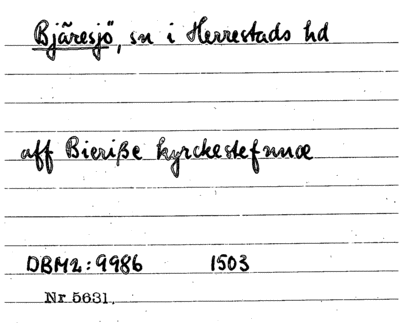 Bjäresjö, sn i Herrestads hd
aff Bieriße kyrckestefnnæ
DBM2:9986 1503
Nr 5631.